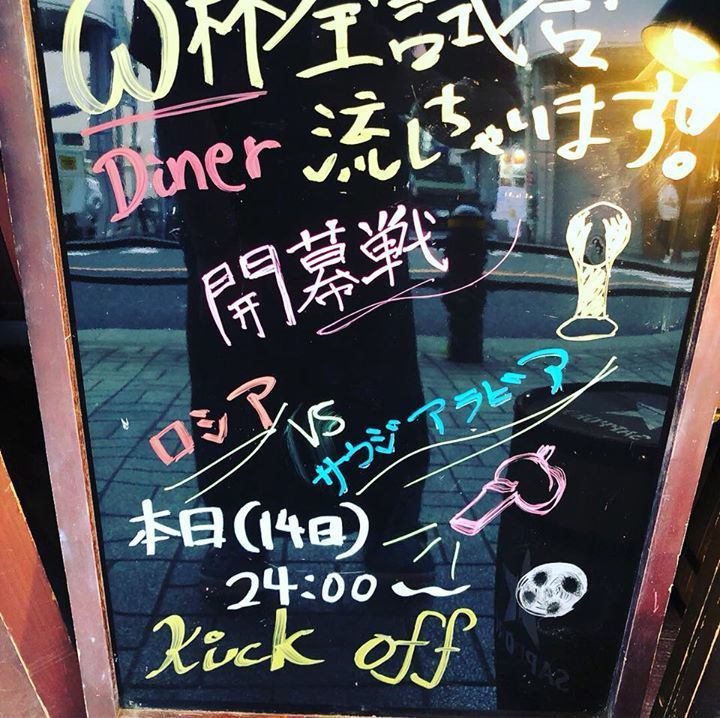 W杯全試合
Diner 流しちゃいます!
開幕戦
ロシア VS サウジアラビア
本日(14日)
24:00〜
Kick off